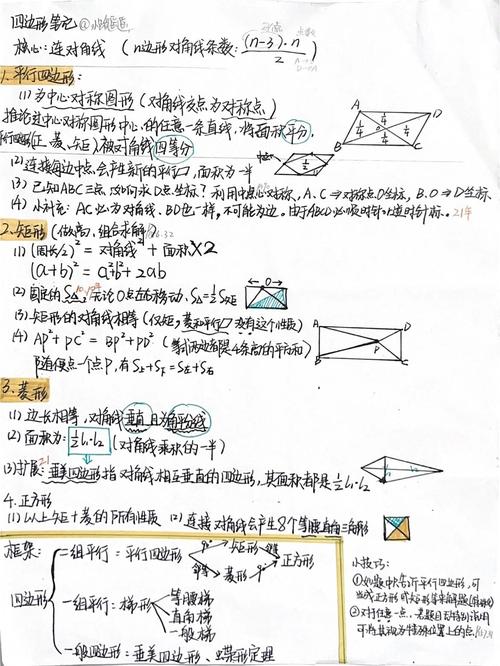 四边形笔记
核心:连对角线 (n边形对角线条数: (n-3)·n / 2)
1.平行四边形:
(1) 为中心对称图形 (对角线交点为对称点)
推论:过中心对称图形中心的任意一条直线,将面积平分.
(正、菱、矩) 被对角线四等分
(2) 连接每边中点会产生新的平行▱,面积为一半
(3) 已知ABC三点,如何求D点坐标?利用中心对称,A、C⇒对称点O坐标,B、O⇒D坐标.
(4) 小补充: AC必为对角线、BD也一样,不可能为边。由于ABCD必顺时针or逆时针标. 21年
A D
B C
O
1/4 1/4 1/4 1/4
1/2
2.矩形 (做高,组合求解)
(1) (周长/2)² = 对角线² + 面积×2
(a+b)² = a²+b²+2ab
(2) 固定的S△,无论O点左右移动,S△=½S矩
←O→
(3) 矩形的对角线相等 (仅矩,菱和平行▱没有这个性质)
(4) AP²+PC² = BP²+PD²
随便点一个点P,有S上+S下=S左+S右
A D
P
B C
3.菱形
(1) 边长相等,对角线垂直且为角平分线
(2) 面积为: ½l₁·l₂ (对角线乘积的一半)
(3) 扩展: 垂美四边形指对角线相互垂直的四边形,其面积都是½l₁·l₂
4.正方形
(1) 以上矩+菱的所有性质 (2) 连接对角线会产生8个等腰直角三角形
框架:
四边形
二组平行:平行四边形
90° 矩形 邻等
邻等 菱形 90°
正方形
一组平行:梯形
等腰梯
直角梯
一般梯
一般四边形:垂美四边形、蝶形定理
小技巧:
①如题中只告诉平行四边形,可
当成正方形或矩形等来解题
②对任意一点,若题目无特别说明
可将其视为特殊位置上的点